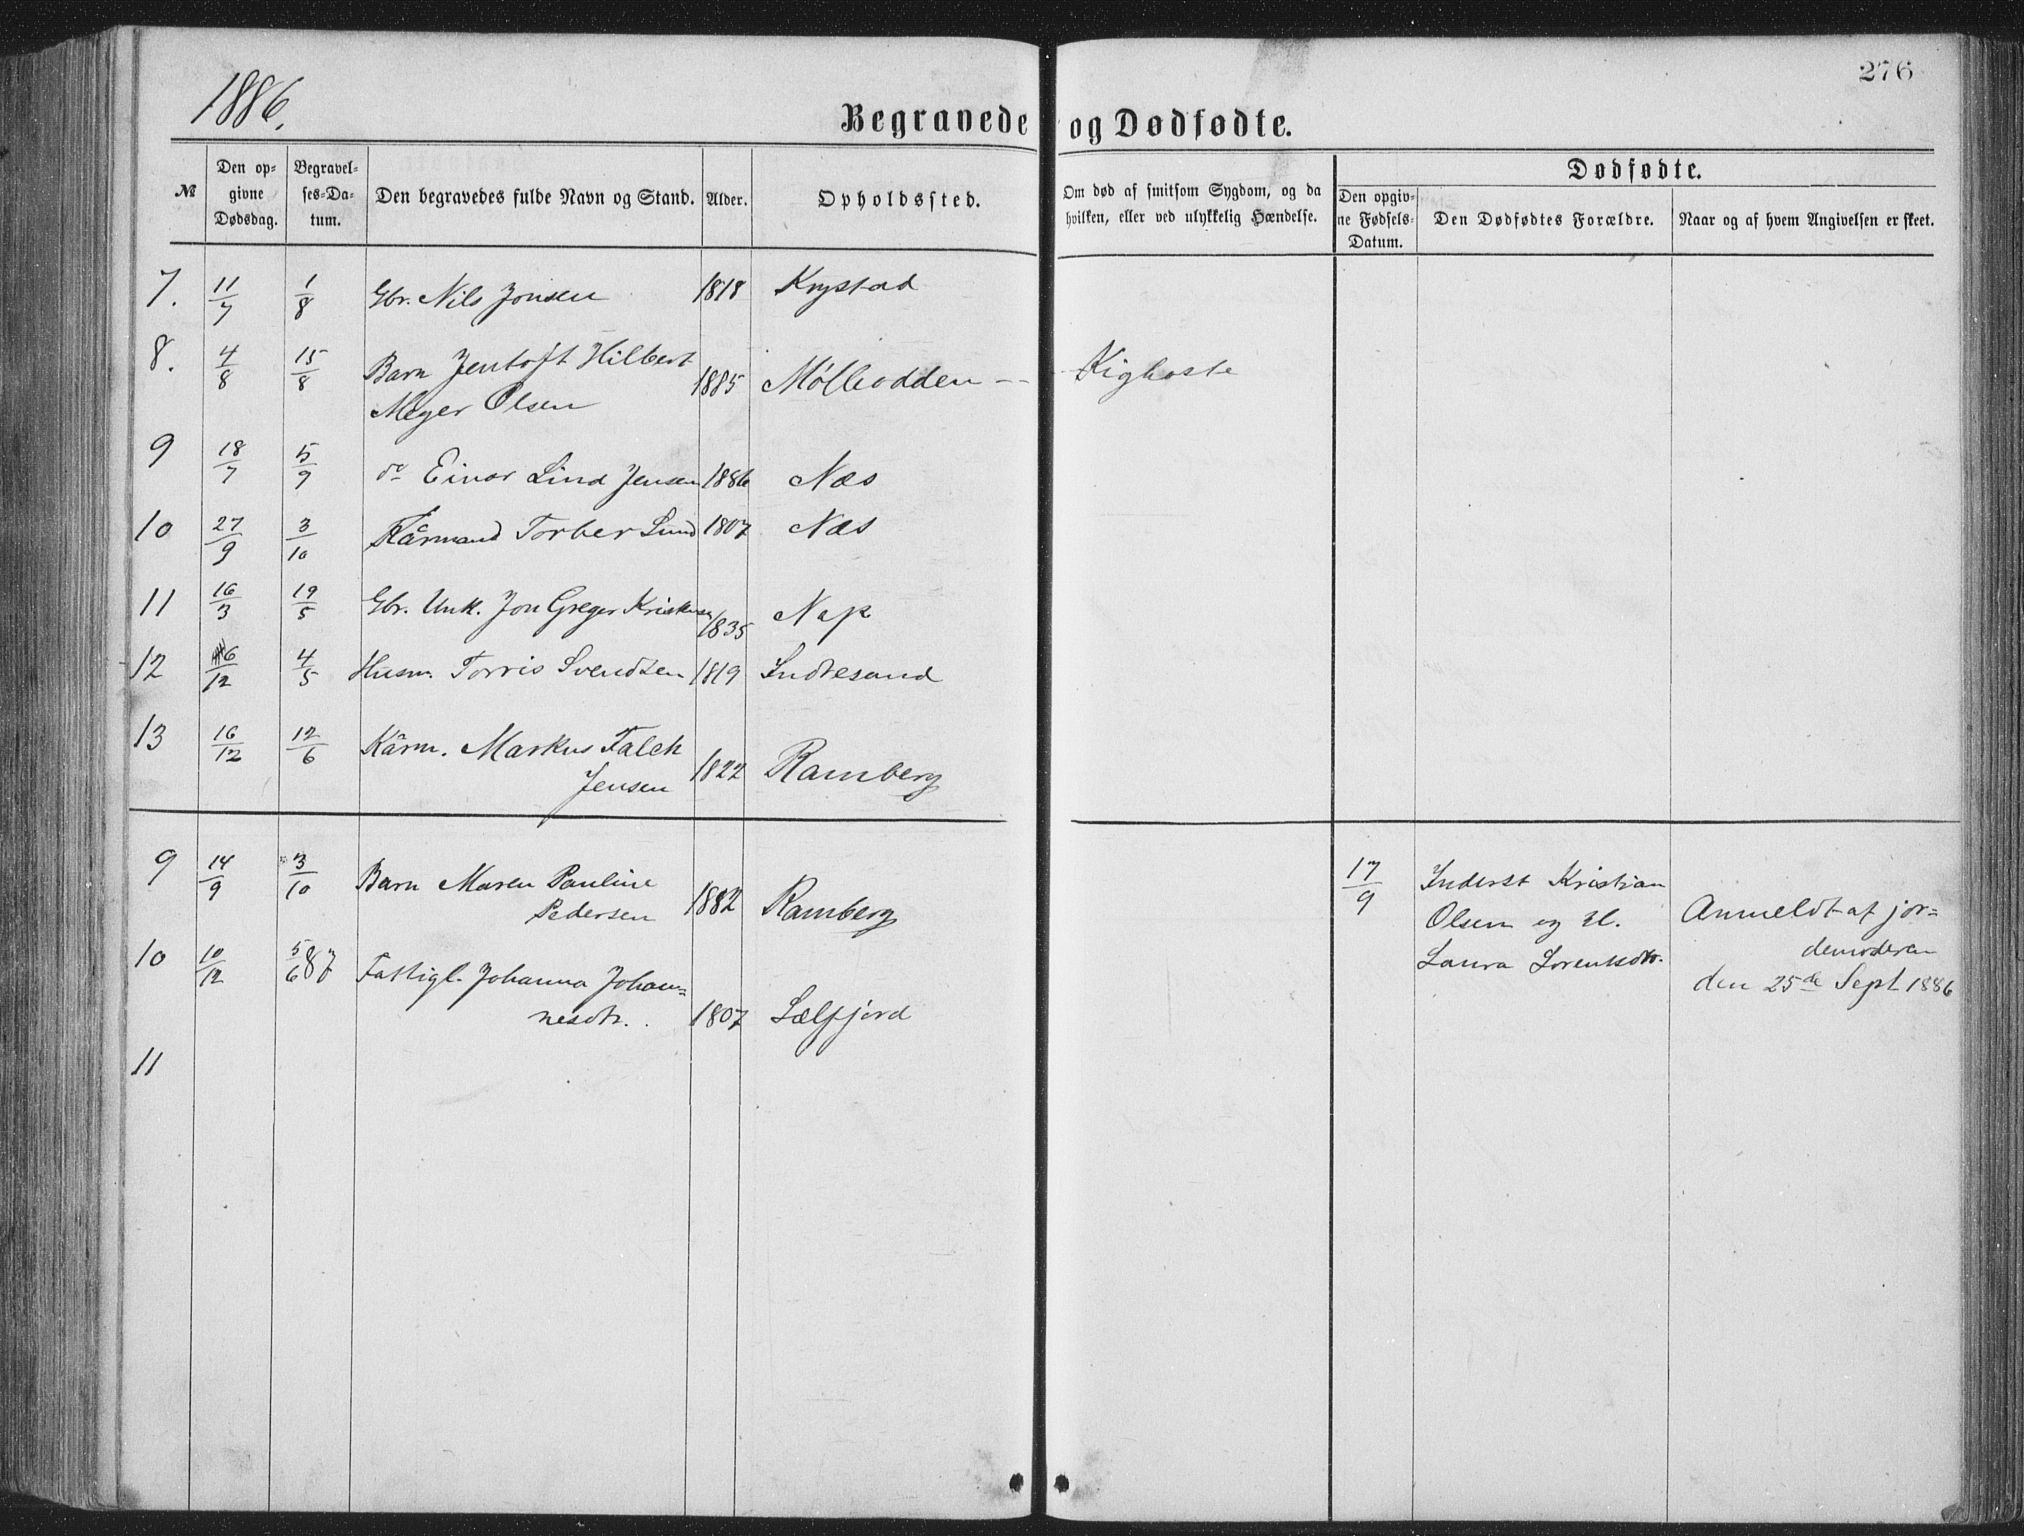 1886.
276
Begravede og Dødfødte.
№
Den op-
givne
Dødsdag.
Begravel-
ses-Da-
tum.
Den begravedes fulde Navn og Stand.
Alder.
Opholdssted.
Om død af smitsom Sygdom, og da
hvilken, eller ved ulykkelig Hændelse.
Dødfødte.
Den opgiv-
ne Fødsels-
Datum.
Den Dødfødtes Forældre.
Naar og af hvem Angivelsen er skeet.
7. 11/7 1/8 Gbr. Nils Jonsen 1818 Krystad
8. 4/8 15/8 Barn Jentoft Hilbert 1885 Mølleodden -- Kighoste
Meyer Olsen
9 18/7 5/9 do Einar Lind Jensen 1886 Næs
10 27/9 3/10 Kårmand Torber Lund 1807 Næs
11 16/3 19/5 Gbr. Unk. Jon Greger Kristensen 1835 Nap
12 6/12 4/5 Husm. Torris Svendsen 1819 Indresand
13 16/12 12/6 Kårm. Markus Falch
Jensen 1822 Ramberg
9 14/9 3/10 Barn Maren Pauline
Pedersen 1882 Ramberg
10 10/12 5/6 87 Fattigl. Johanna Johan=
nesdtr. 1807 Sælfjord
11
17/9 Inderst Kristian
Olsen og H.
Laura Lorentsdtr.
Anmeldt af jor=
demoderen
den 25de Sept. 1886